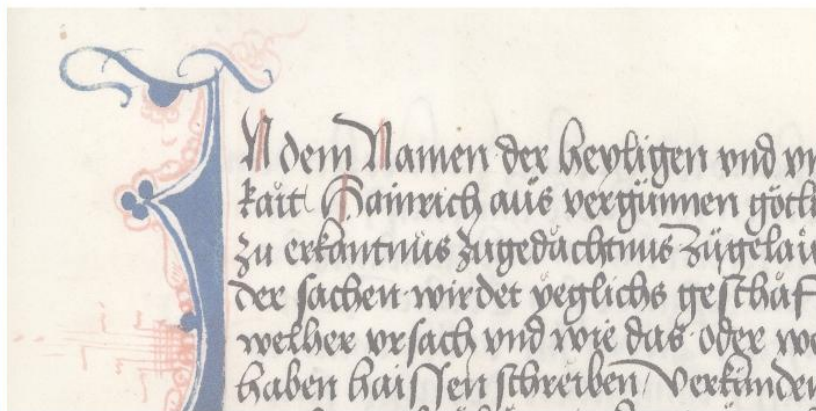 IN dem Namen der heyligen vnd vn
kait Hainrich aus vergünnen götli
zu erkantnüs zugedächtnus zügelaü
der sachen wirdet yeglichs geschäf
welher vrsach vnd wie das oder we
haben haissen schreiben Verkünden